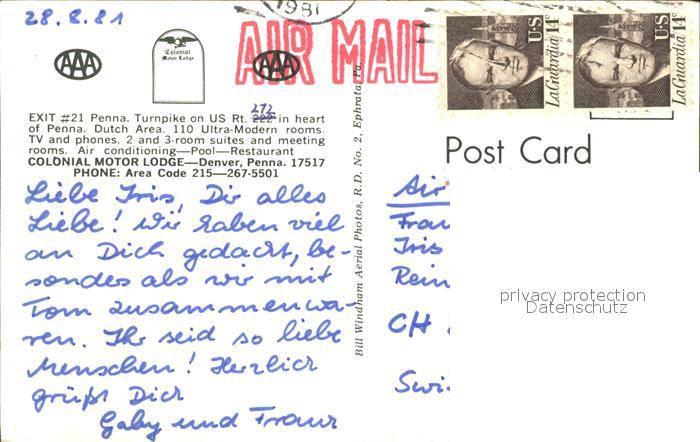 28.8.81
1981
AIR MAIL
AAA
AAA
Colonial
Motor Lodge
U·S
14¢
LaGuardia
U·S
14¢
LaGuardia
272
EXIT #21 Penna. Turnpike on US Rt. 222 in heart
of Penna. Dutch Area. 110 Ultra-Modern rooms.
TV and phones. 2 and 3-room suites and meeting
rooms. Air conditioning—Pool—Restaurant
COLONIAL MOTOR LODGE—Denver, Penna. 17517
PHONE: Area Code 215—267-5501
Bill Windham Aerial Photos, R.D. No. 2, Ephrata, Pa.
Post Card
Liebe Iris, Dir alles
Liebe! Wir haben viel
an Dich gedacht, be-
sondes als wir mit
Tom zusammenwa-
ren. Ihr seid so liebe
Menschen! Herzlich
grüßt Dich
Gaby und Franz
Air
Frau
Iris
Rein
CH
Swi
privacy protection
Datenschutz